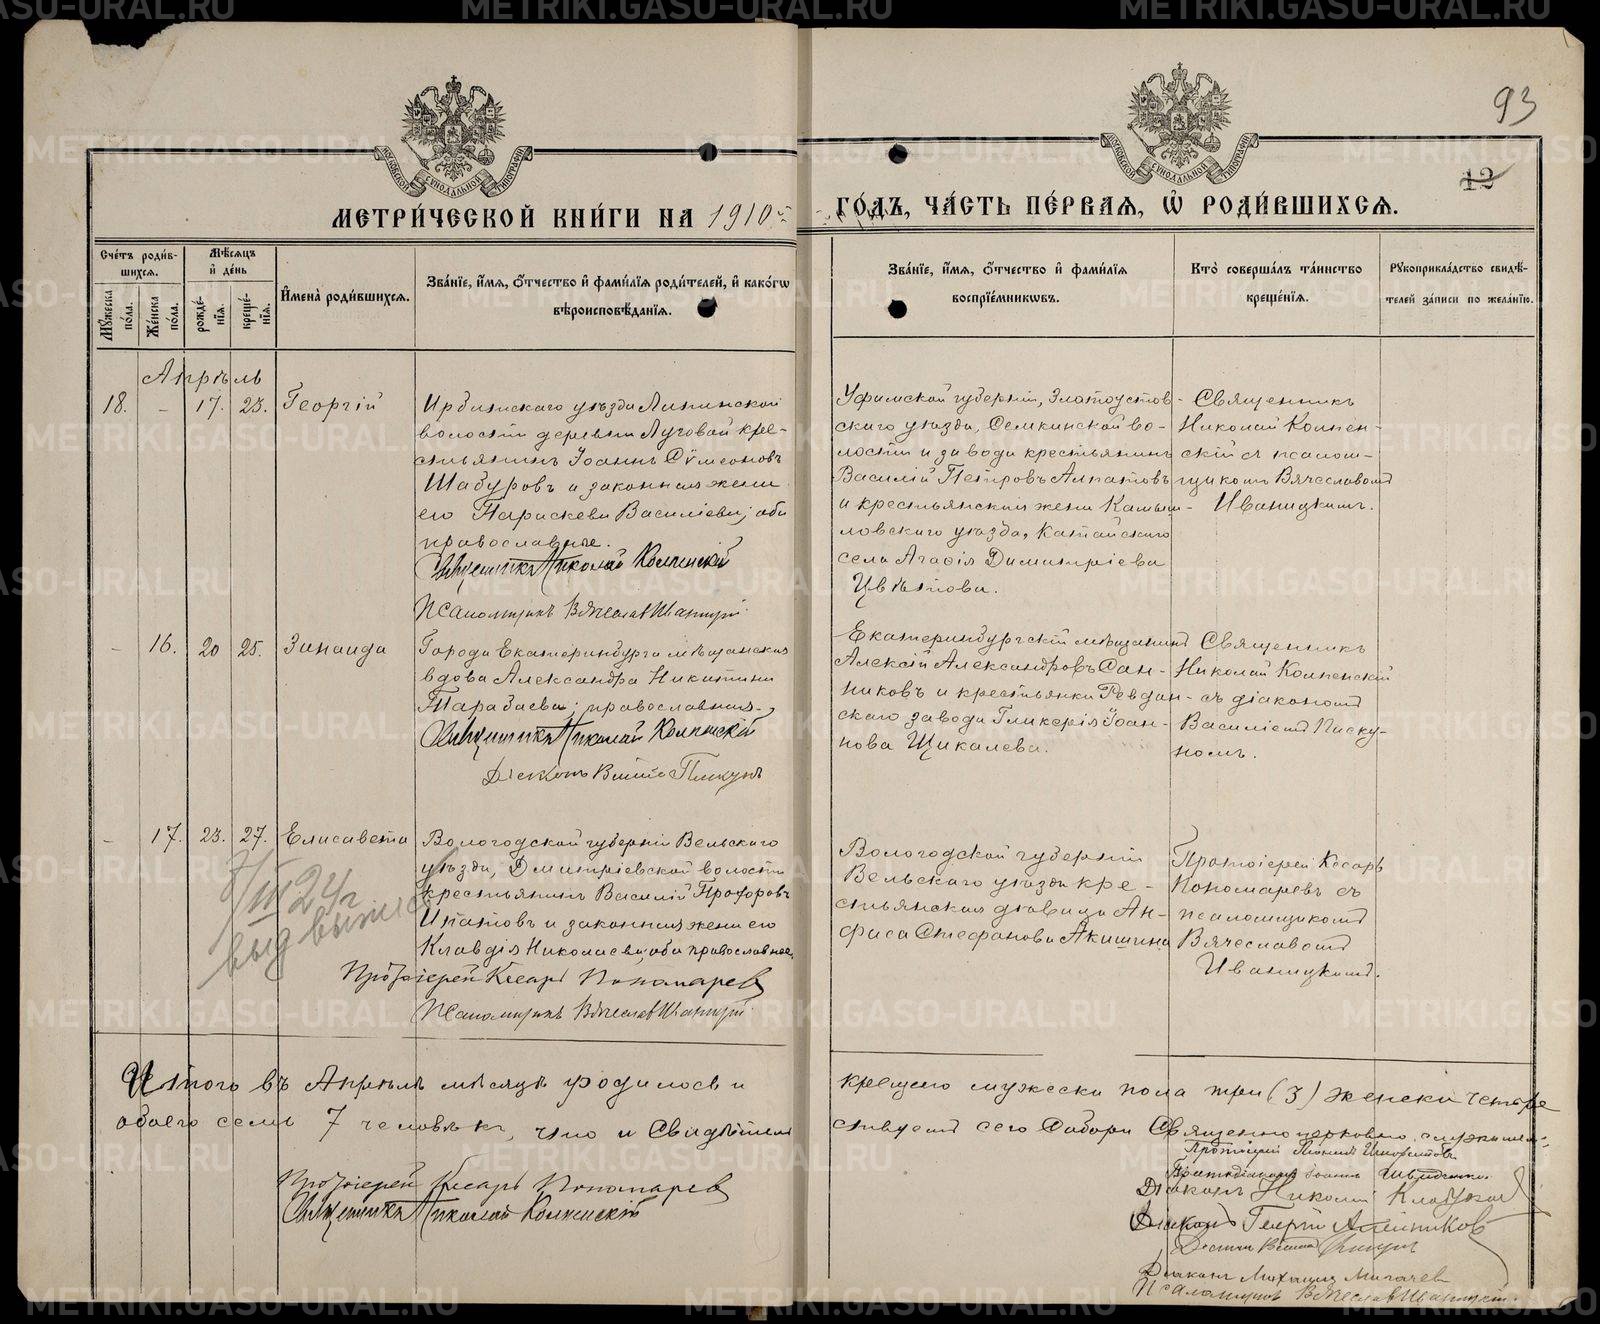 93
12
МОСКОВСКОЙ СѴНОДАЛЬНОЙ ТИПОГРАФІИ
МОСКОВСКОЙ СѴНОДАЛЬНОЙ ТИПОГРАФІИ
МЕТРИ́ЧЕСКОЙ КНИ́ГИ НА 1910й ГО́ДЪ, ЧА́СТЬ ПЕ́РВАЯ, Ѽ РОДИ́ВШИХСЯ.
Сче́тъ роди́в-
шихся.
Мужеска по́ла.
Же́нска по́ла.
Мѣ́сяцъ
и́ де́нь
рожде́-
нія.
креще́-
нія.
И́мена̀ роди́вшихся.
Зва́ніе, и́мя, о́тчество и́ фами́лія роди́телей, и́ како́гѡ
вѣроисповѣ́данія.
Зва́ніе, и́мя, о́тчество и́ фами́лія
воспріе́мникѡвъ.
Кто̀ соверша́лъ та́инство
креще́нія.
Рукоприкла́дство свидѣ́-
телей за́писи по жела́нію.
Апрѣль
18. - 17. 23. Георгій
Ирбитскаго уѣзда Ляпинской
волости деревни Луговой кре-
стьянинъ Іоаннъ Сѵмеоновъ
Шабуровъ и законная жена
его Параскева Василіева; оба
православные.
Священникъ Николай Колпенскій
Псаломщикъ Вячеславъ Иваницкій
Уфимской губерніи, Златоустов-
скаго уѣзда, Семкинской во-
лости и завода крестьянинъ
Василій Петровъ Алпатовъ
и крестьянская жена Камыш-
ловскаго уѣзда, Катайскаго
села Агаѳія Димитріева
Цвѣтова.
Священникъ
Николай Колпен-
скій съ псалом-
щикомъ Вячеславомъ
Иваницкимъ.
- 16. 20 25. Зинаида
Города Екатеринбурга мѣщанская
вдова Александра Никитина
Тарабаева; православная.
Священникъ Николай Колпенскій
Діаконъ Василій Пискунъ
Екатеринбургскій мѣщанинъ
Алексій Александровъ Сан-
никовъ и крестьянка Ревдин-
скаго завода Гликерія Іоан-
нова Щикалева.
Священникъ
Николай Колпенскій
съ діакономъ
Василіемъ Писку-
номъ.
- 17. 23. 27. Елисавета
Вологодской губерніи Вельскаго
уѣзда, Димитріевской волости
крестьянинъ Василій Прохоровъ
Ипатовъ и законная жена его
Клавдія Николаева; оба православные.
Протоіерей Кесарь Пономаревъ
Псаломщикъ Вячеславъ Иваницкій
8/III 24г
выд выпис
Вологодской губерніи
Вельскаго уѣзда кре-
стьянская дѣвица Ан-
фиса Стефанова Акишина
Протоіерей Кесарь
Пономаревъ съ
псаломщикомъ
Вячеславомъ
Иваницкимъ.
Итого въ Апрѣлѣ мѣсяцѣ родилось и крещено мужеска пола три (3) женска четыре
обоего семь 7 человѣкъ, что и свидѣтельствуетъ сего Собора Священноцерковно-служители:
Протоіерей Кесарь Пономаревъ
Священникъ Николай Колпенскій
Діаконъ Николай
Діаконъ Георгій Алейниковъ
Діаконъ Василій Пискунъ
Діаконъ Михаилъ
Псаломщикъ Вячеславъ Иваницкій.